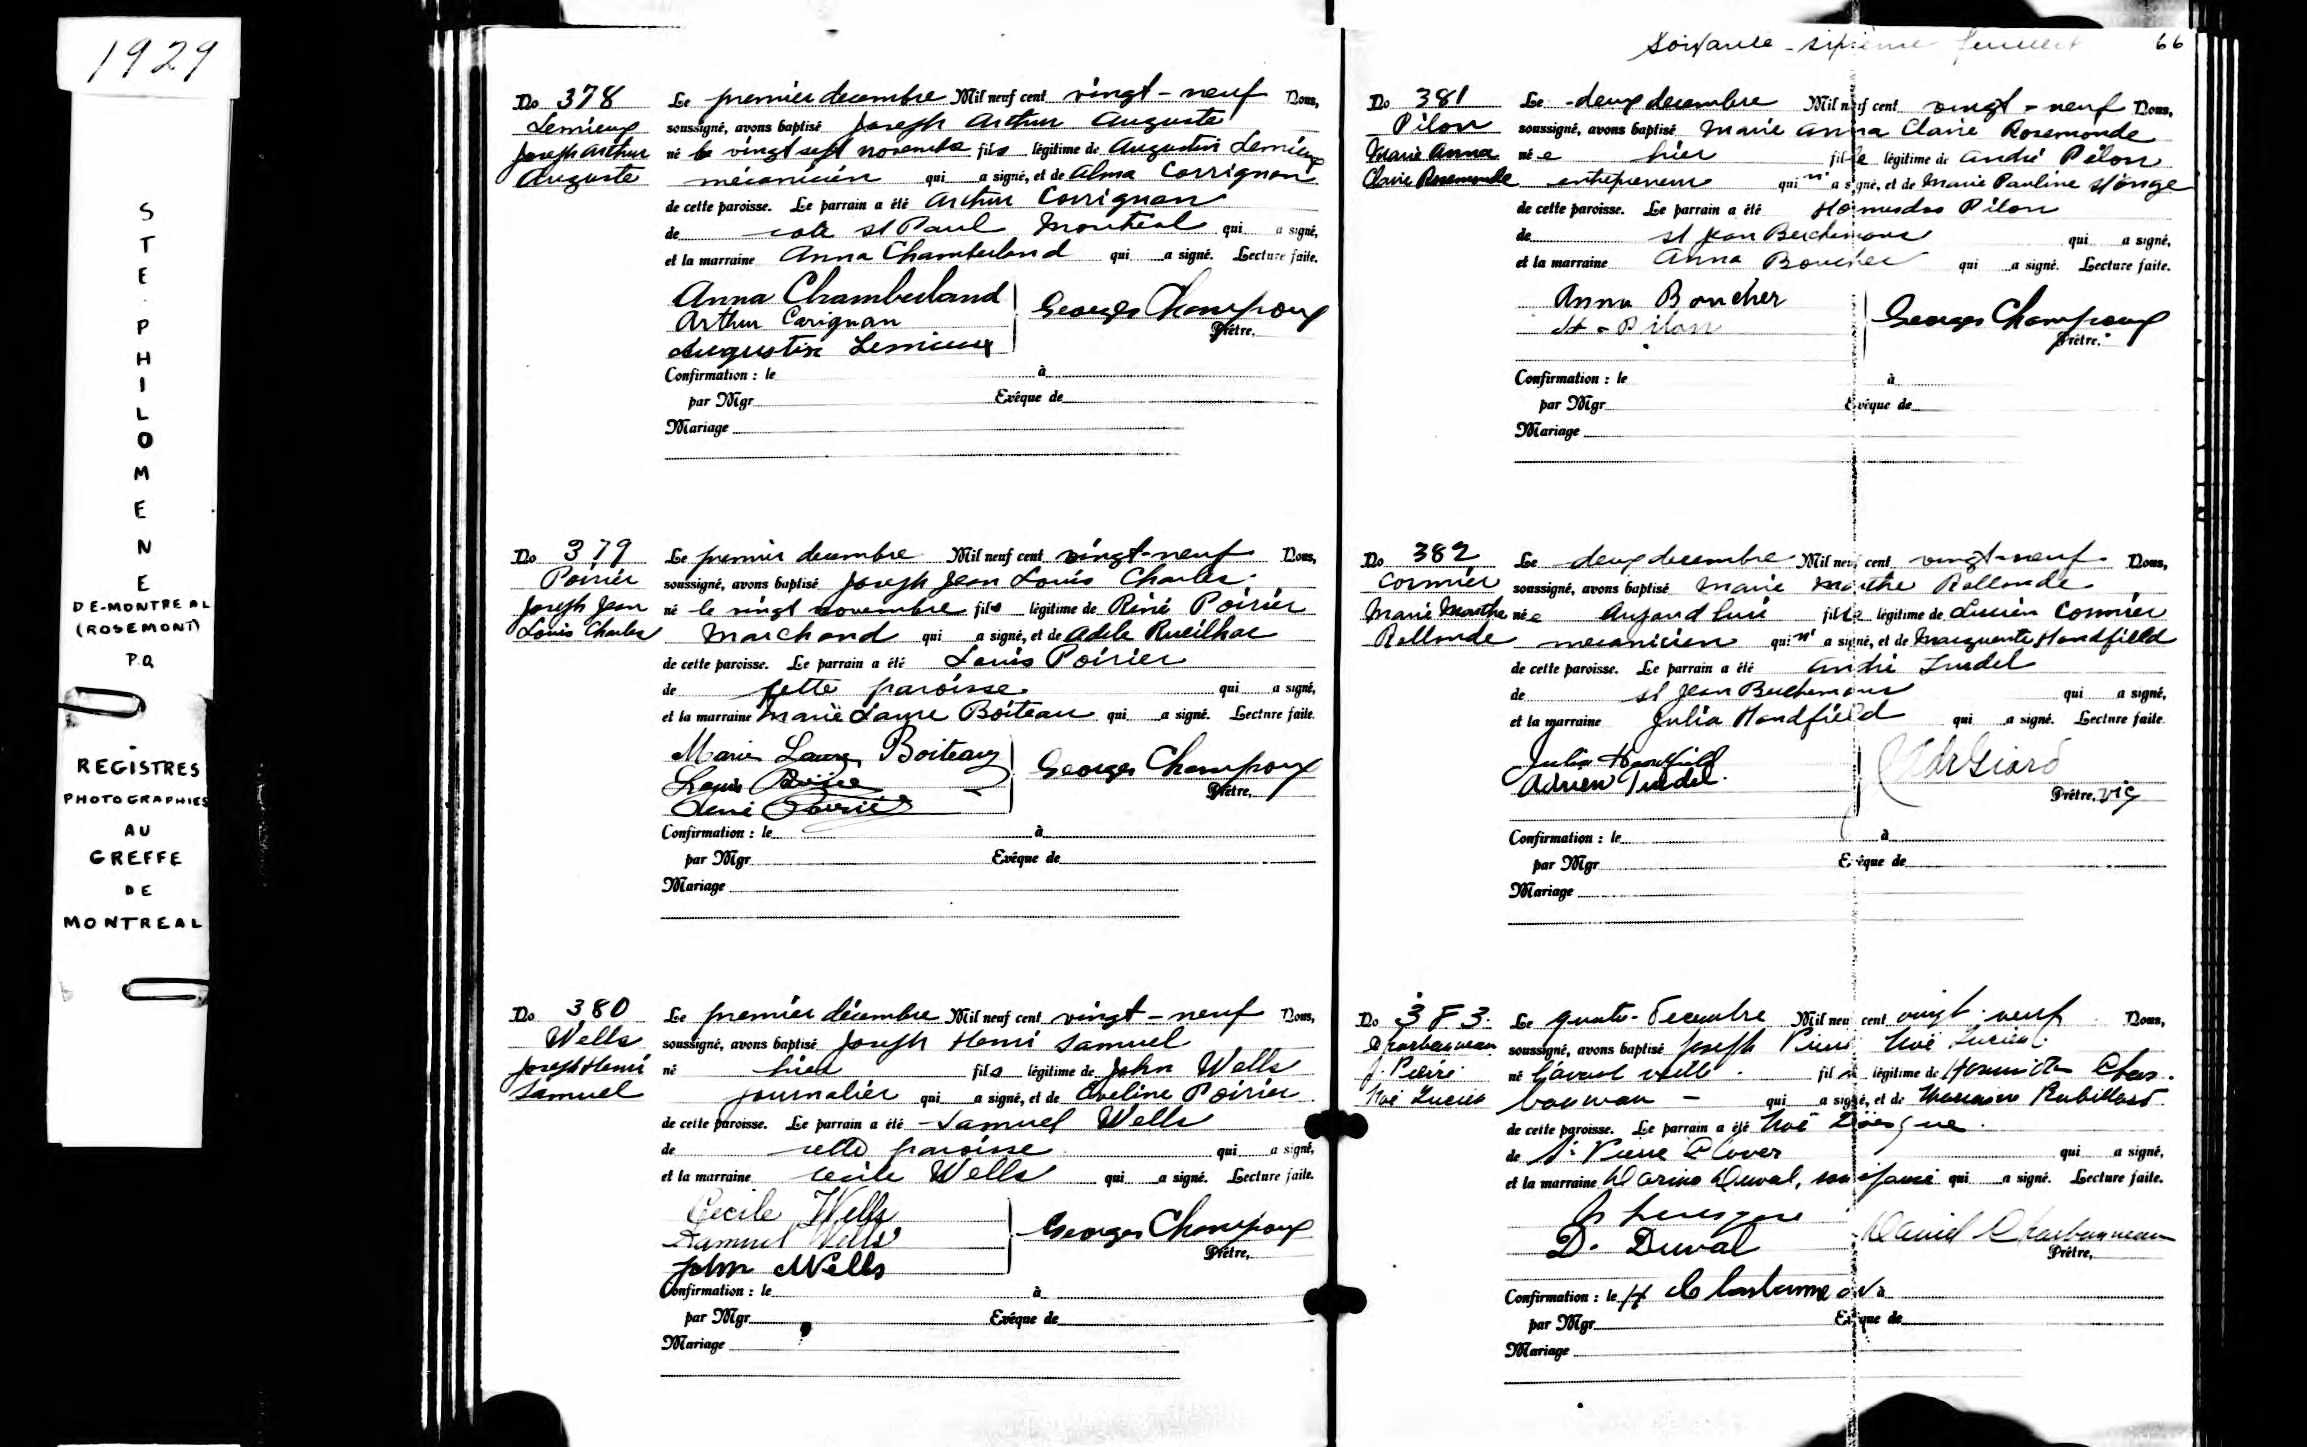 1929
STE. PHILOMENE
DE-MONTREAL
(ROSEMONT)
P.Q.
REGISTRES
PHOTOGRAPHIES
AU
GREFFE
DE
MONTREAL
No 378
Lemieux
Joseph Arthur
Auguste
Le premier decembre Mil neuf cent vingt-neuf Nous,
soussigné, avons baptisé Joseph Arthur Auguste
né le vingt sept novembre fils légitime de Augustin Lemieux
mécanicien qui a signé, et de Alma Corrignan
de cette paroisse. Le parrain a été Arthur Corrignan
de cote st Paul Montreal qui a signé,
et la marraine Anna Chamberland qui a signé. Lecture faite.
Anna Chamberland
Arthur Carignan
Augustin Lemieux
Georges Champoux
Prêtre.
Confirmation : le à
par Mgr Evêque de
Mariage
No 379
Poirier
Joseph Jean
Louis Charles
Le premier decembre Mil neuf cent vingt-neuf Nous,
soussigné, avons baptisé Joseph Jean Louis Charles
né le vingt novembre fils légitime de Réné Poirier
Marchand qui a signé, et de Adele Rueilhac
de cette paroisse. Le parrain a été Louis Poirier
de cette paroisse qui a signé,
et la marraine Marie Laure Boiteau qui a signé. Lecture faite.
Marie Laure Boiteau
Louis
René Poirier
Georges Champoux
Prêtre.
Confirmation : le à
par Mgr Evêque de
Mariage
No 380
Wells
Joseph Henri
Samuel
Le premier décembre Mil neuf cent vingt-neuf Nous,
soussigné, avons baptisé Joseph Henri Samuel
né hier fils légitime de John Wells
journalier qui a signé, et de Eveline Poirier
de cette paroisse. Le parrain a été Samuel Wells
de cette paroisse qui a signé,
et la marraine Cecile Wells qui a signé. Lecture faite.
Cecile Wells
Samuel Wells
John Wells
Georges Champoux
Prêtre.
Confirmation : le à
par Mgr Evêque de
Mariage
Soixante-sixième feuillet 66
No 381
Pilon
Marie Anna
Claire Rosemonde
Le deux decembre Mil neuf cent vingt-neuf Nous,
soussigné, avons baptisé Marie Anna Claire Rosemonde
née hier fille légitime de André Pilon
entrepreneur qui n' a signé, et de Marie Pauline St Onge
de cette paroisse. Le parrain a été Pilon
de st Jean Berchmans qui a signé,
et la marraine Anna Boucher qui a signé. Lecture faite.
Anna Boucher
H. Pilon
Georges Champoux
Prêtre.
Confirmation : le à
par Mgr Evêque de
Mariage
No 382
Cormier
Marie Marthe
Rollande
Le deux decembre Mil neuf cent vingt-neuf Nous,
soussigné, avons baptisé Marie Marthe Rollande
née Aujourd'hui fille légitime de Lucien Cormier
mecanicien qui n' a signé, et de Marguerite Handfield
de cette paroisse. Le parrain a été André Trudel
de st Jean Berchmans qui a signé,
et la marraine Julia Handfield qui a signé. Lecture faite.
Julia Handfield
Adrien Trudel.
Prêtre, vic
Confirmation : le à
par Mgr Evêque de
Mariage
No 383.
Charbonneau
J. Pierre
Noé Lucien
Le quatre decembre Mil neuf cent vingt-neuf Nous,
soussigné, avons baptisé Joseph Pierre Noé Lucien
né l'avant veille fils légitime de Char-
bonneau qui a signé, et de Robillard
de cette paroisse. Le parrain a été Noé
de St Pierre Claver qui a signé,
et la marraine Duval, son épouse qui a signé. Lecture faite.
D. Duval
Daniel Charbonneau
Prêtre.
Confirmation : le à
par Mgr Evêque de
Mariage